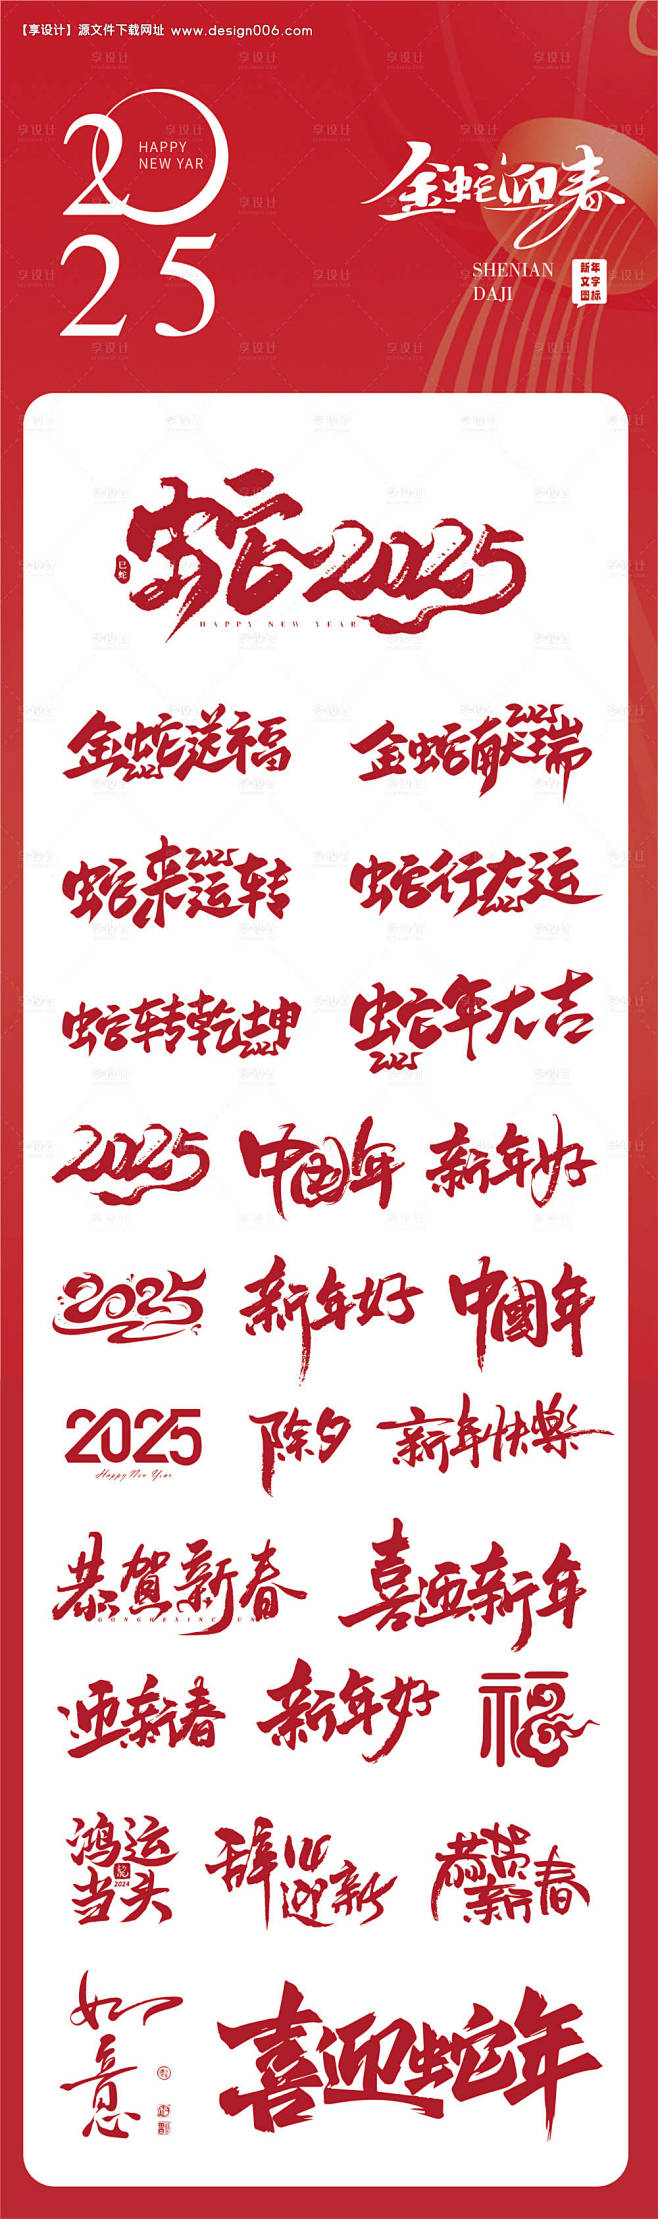 【享设计】源文件下载网址 www.design006.com
2025
HAPPY
NEW YAR
金蛇迎春
SHENIAN
DAJI
新年
文字
图标
蛇2025
巳蛇
HAPPY NEW YEAR
金蛇送福
2025
金蛇献瑞
2025
蛇来运转
2025
蛇行大运
2025
蛇转乾坤
2025
蛇年大吉
2025
2025
中国年
新年好
2025
新年好
中國年
2025
Happy New Year
除夕
新年快樂
恭賀新春
GONGHEXINCUN
喜迎新年
迎新春
新年好
福
鸿运
当头
2024
辞旧
迎新
恭贺
新春
如意
喜迎蛇年